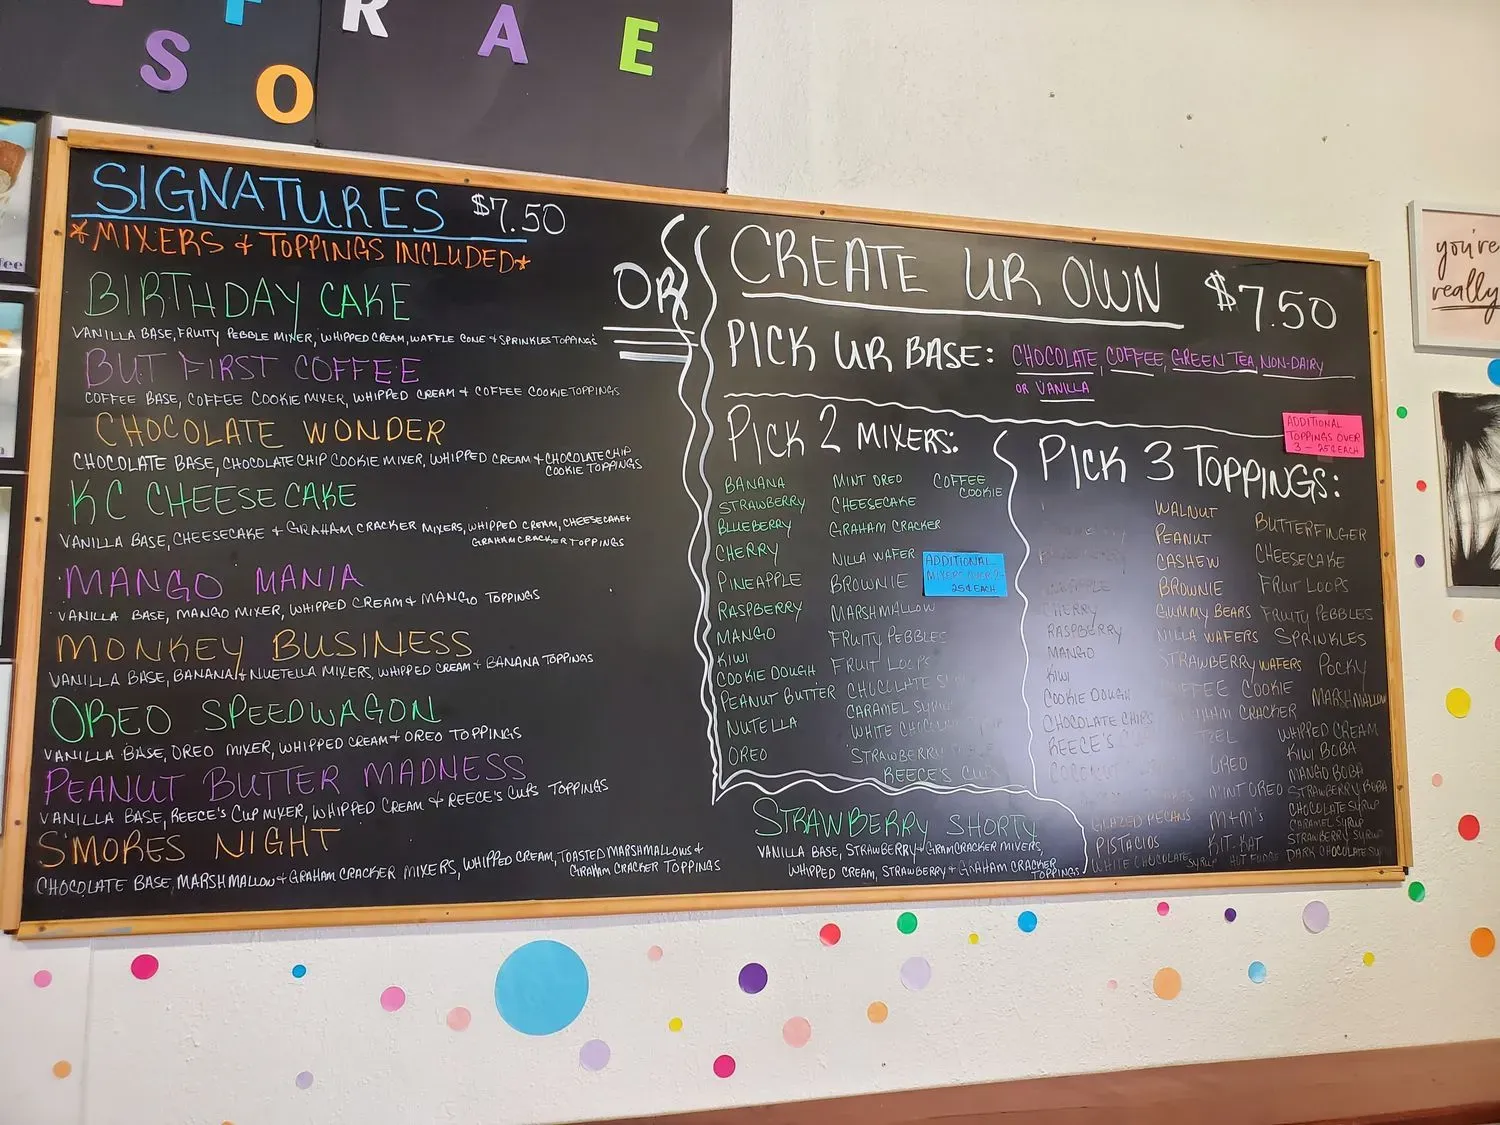 F R A E
S O
SIGNATURES $7.50
*MIXERS & TOPPINGS INCLUDED*
BIRTHDAY CAKE
VANILLA BASE, FRUITY PEBBLE MIXER, WHIPPED CREAM, WAFFLE CONE & SPRINKLES TOPPINGS
BUT FIRST COFFEE
COFFEE BASE, COFFEE COOKIE MIXER, WHIPPED CREAM & COFFEE COOKIE TOPPINGS
CHOCOLATE WONDER
CHOCOLATE BASE, CHOCOLATE CHIP COOKIE MIXER, WHIPPED CREAM & CHOCOLATE CHIP
COOKIE TOPPINGS
KC CHEESECAKE
VANILLA BASE, CHEESECAKE & GRAHAM CRACKER MIXERS, WHIPPED CREAM, CHEESECAKE &
GRAHAM CRACKER TOPPINGS
MANGO MANIA
VANILLA BASE, MANGO MIXER, WHIPPED CREAM & MANGO TOPPINGS
MONKEY BUSINESS
VANILLA BASE, BANANA & NUETELLA MIXERS, WHIPPED CREAM & BANANA TOPPINGS
OREO SPEEDWAGON
VANILLA BASE, OREO MIXER, WHIPPED CREAM & OREO TOPPINGS
PEANUT BUTTER MADNESS
VANILLA BASE, REECE'S CUP MIXER, WHIPPED CREAM & REECE'S CUPS TOPPINGS
S'MORES NIGHT
CHOCOLATE BASE, MARSHMALLOW & GRAHAM CRACKER MIXERS, WHIPPED CREAM, TOASTED MARSHMALLOWS &
GRAHAM CRACKER TOPPINGS
OR
CREATE UR OWN $7.50
PICK UR BASE: CHOCOLATE, COFFEE, GREEN TEA, NON-DAIRY
OR VANILLA
PICK 2 MIXERS:
BANANA
STRAWBERRY
BLUEBERRY
CHERRY
PINEAPPLE
RASPBERRY
MANGO
KIWI
COOKIE DOUGH
PEANUT BUTTER
NUTELLA
OREO
MINT OREO
CHEESECAKE
GRAHAM CRACKER
NILLA WAFER
BROWNIE
MARSHMALLOW
FRUITY PEBBLES
FRUIT LOOPS
CHOCOLATE
CARAMEL
WHITE
STRAWBERRY
REECE'S CUP
COFFEE
COOKIE
ADDITIONAL
MIXERS OVER 2-
25¢ EACH
PICK 3 TOPPINGS:
ADDITIONAL
TOPPINGS OVER
3 - 25¢ EACH
CHERRY
RASPBERRY
MANGO
KIWI
COOKIE DOUGH
CHOCOLATE CHIPS
REECE'S
GLAZED PECANS
PISTACIOS
WHITE CHOCOLATE SYRUP
WALNUT
PEANUT
CASHEW
BROWNIE
GUMMY BEARS
NILLA WAFERS
STRAWBERRY WAFERS
COFFEE COOKIE
CRACKER
OREO
MINT OREO
M+M'S
KIT-KAT
HOT FUDGE
BUTTERFINGER
CHEESECAKE
FRUIT LOOPS
FRUITY PEBBLES
SPRINKLES
POCKY
MARSHMALLOW
WHIPPED CREAM
KIWI BOBA
MANGO BOBA
STRAWBERRY BOBA
CHOCOLATE SYRUP
CARAMEL SYRUP
STRAWBERRY SYRUP
DARK CHOCOLATE
STRAWBERRY SHORTY
VANILLA BASE, STRAWBERRY & GRAMCRACKER MIXERS,
WHIPPED CREAM, STRAWBERRY & GRAHAM CRACKER
TOPPINGS
you're
really